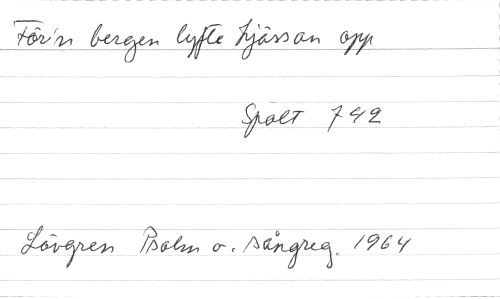 Förrn bergen lyfte hjässan opp
Spalt 742
Lövgren Psalm o. sångreg. 1964